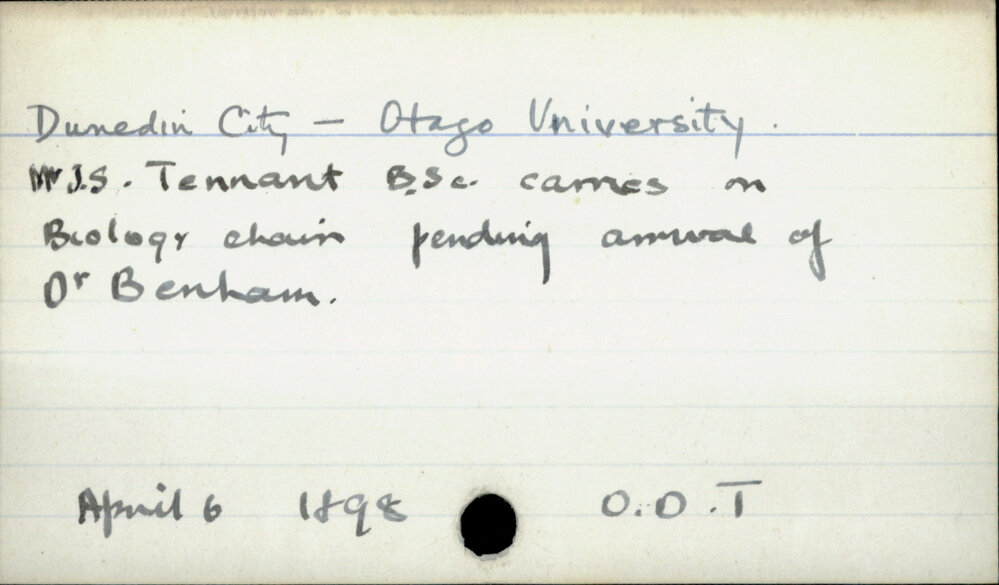 Dunedin City – Otago University.
Mr J.S. Tennant B.Sc. carries on
Biology chair pending arrival of
Dr Benham.
April 6 1898 O.D.T